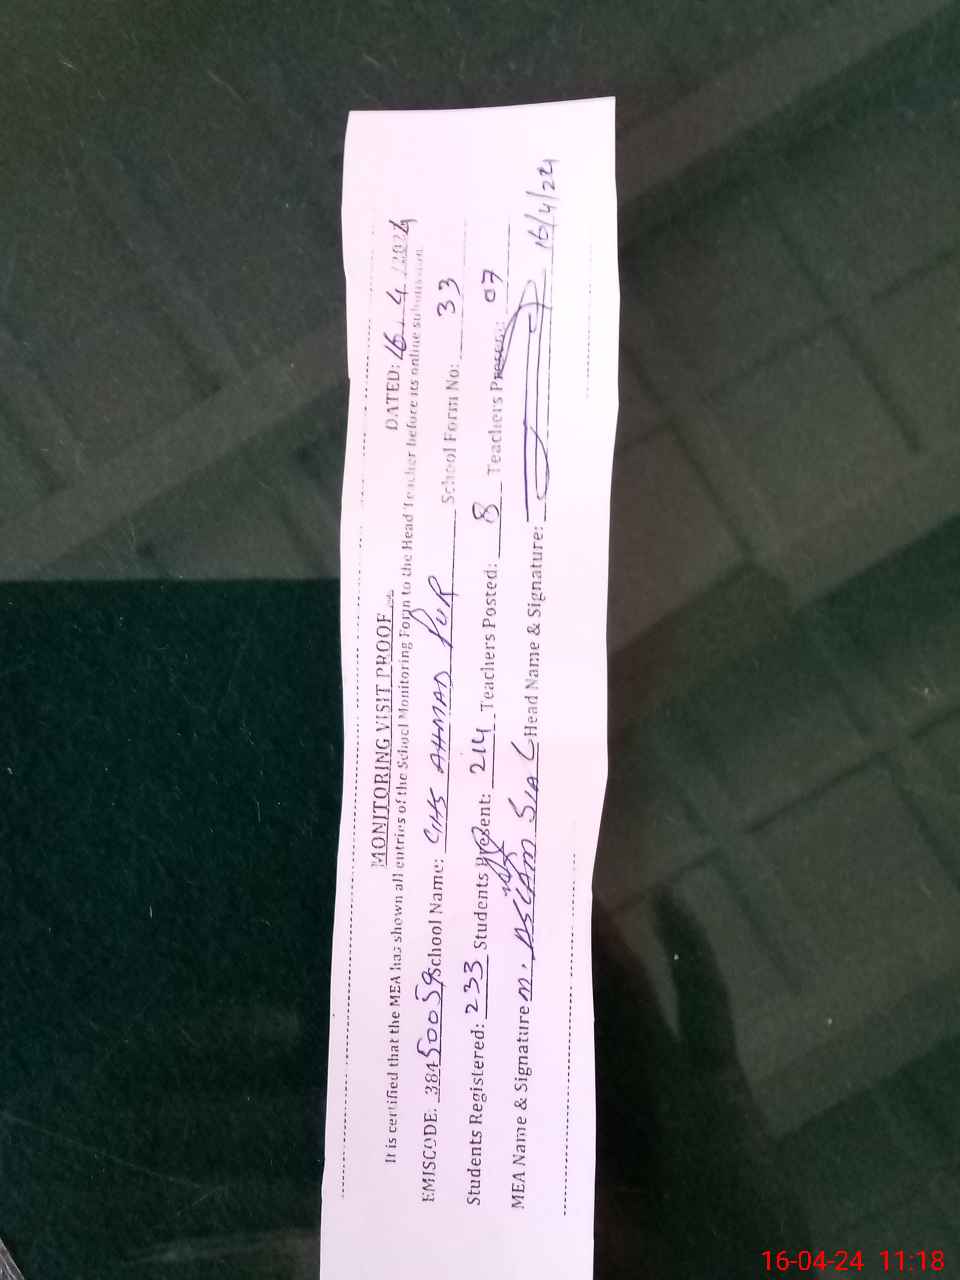 MONITORING VISIT PROOF
DATED: 16. 4. /2024
It is certified that the MEA has shown all entries of the School Monitoring Form to the Head Teacher before its online submission.
EMISCODE: 38450059 School Name: GHS AHMAD PUR School Form No: 33
Students Registered: 233 Students Present: 214 Teachers Posted: 8 Teachers Present: 07
MEA Name & Signature M. ASLAM SIAL Head Name & Signature: 16/4/24
16-04-24 11:18